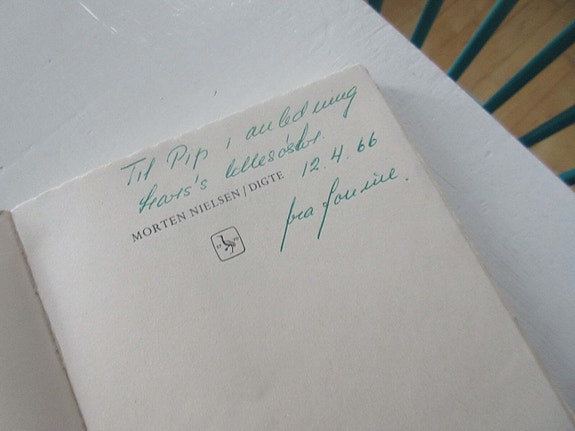 Til Pip i anledning
lillesøster.
12.4.66
MORTEN NIELSEN / DIGTE
fra